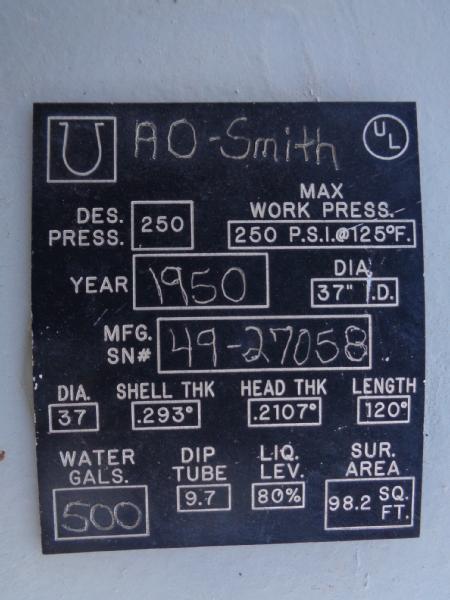 U AO-Smith UL
MAX
DES. WORK PRESS.
PRESS. 250 250 P.S.I.@125°F.
YEAR 1950 DIA.
37" I.D.
MFG.
SN# 49-27058
DIA. SHELL THK HEAD THK LENGTH
37 .293° .2107° 120°
WATER GALS. DIP TUBE LIQ. LEV. SUR. AREA
500 9.7 80% 98.2 SQ. FT.